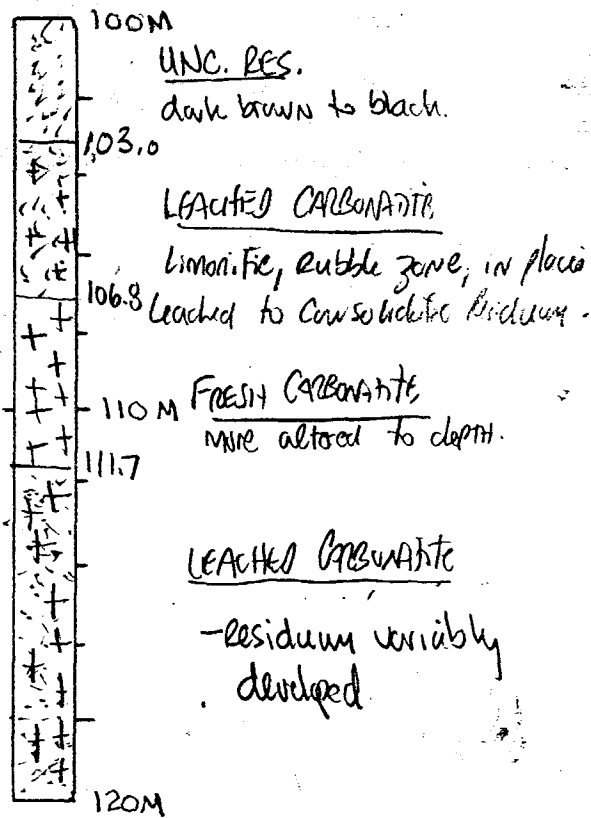 100M
UNC. RES.
dark brown to black.
103.0
LEACHED CARBONATITE
Limonitic, Rubble zone, in places
106.8 leached to Consolidated Residuum.
110M FRESH CARBONATITE
more altered to depth.
111.7
LEACHED CARBONATITE
-Residuum variably
developed
120M